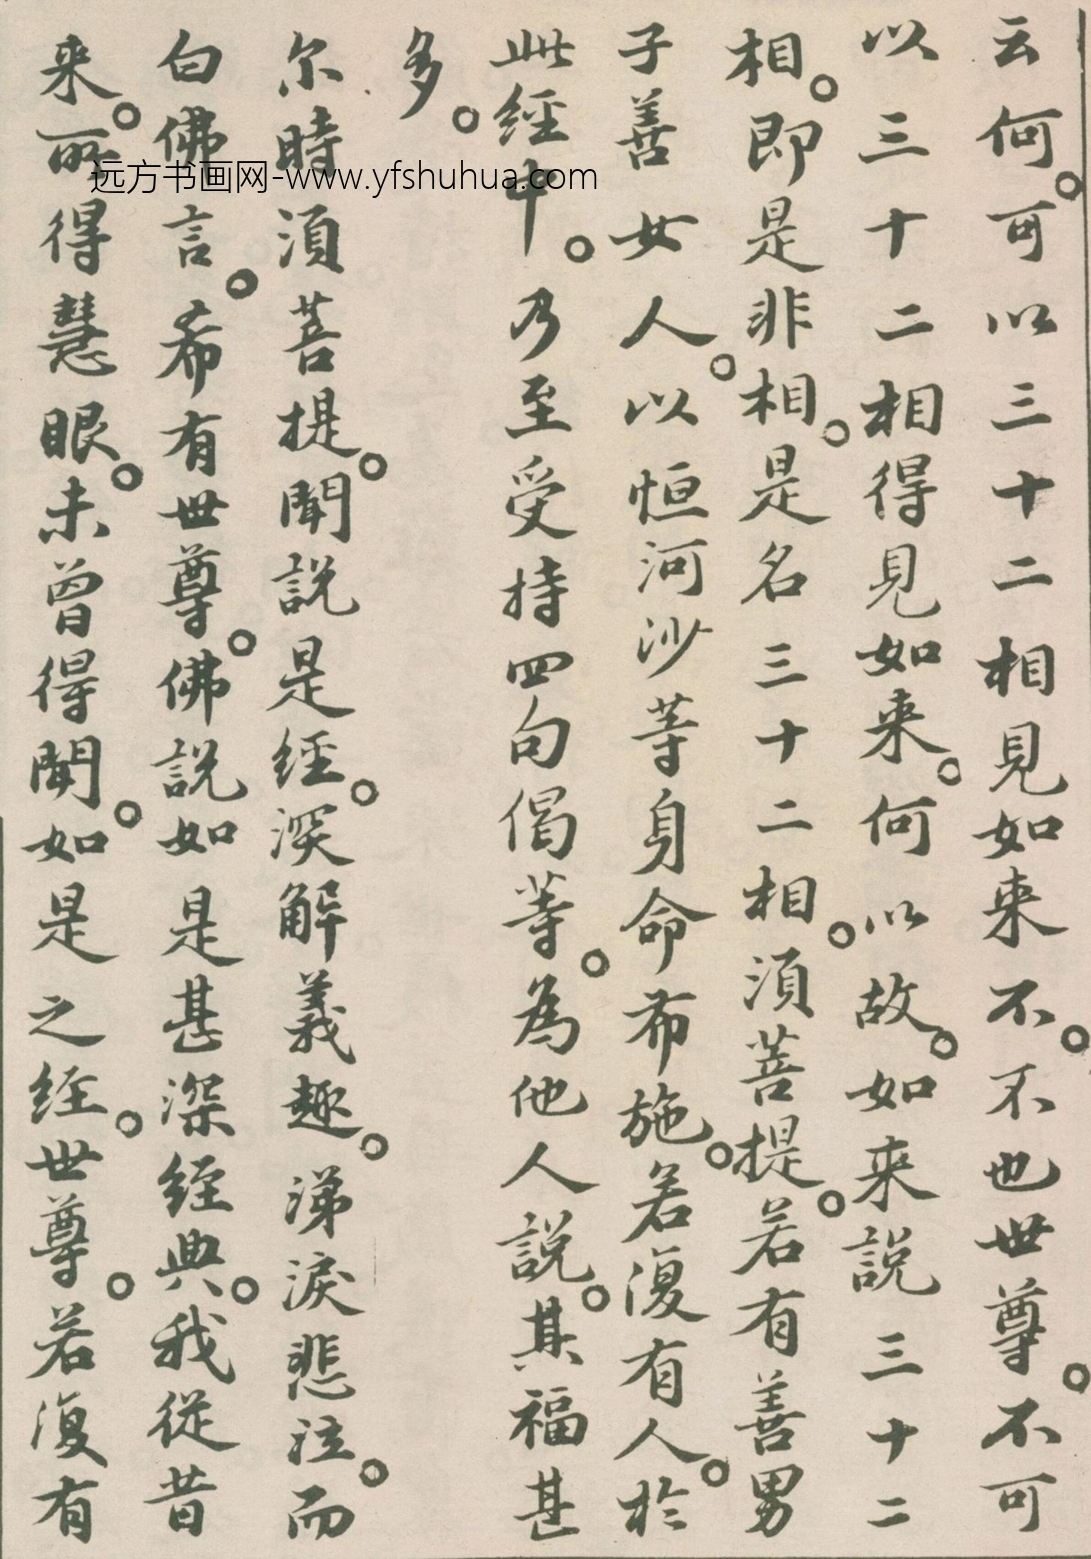 云何。可可以三十二相見如来不。不也世尊。不可
以三十二相得見如来。何以故。如来説三十二
相。即是非相。是名三十二相。須菩提。若有善男
子善女人。以恒河沙等身命布施。若復有人。於
此經中。乃至受持四句偈等。為他人説。其福甚
多。
尔時須菩提。聞説是經。深解義趣。涕淚悲泣。而
白佛言。希有世尊。佛説如是甚深經典。我從昔
来。所得慧眼。未曾得聞。如是之經。世尊。若復有
远方书画网-www.yfshuhua.com